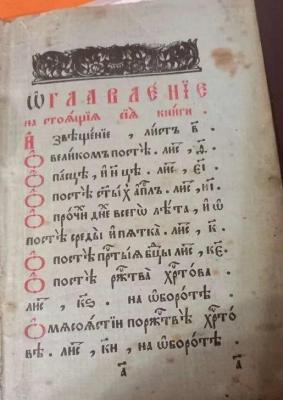 Ѡ҆ГЛАВЛЕ́НЇЕ
на стоѧ́щїѧ сїѧ̀ кни́ги .
И҆звѣще́нїе , ли́стъ в҃ .
Ѽ вели́комъ постѣ̀ . ли́с , є҃і
Ѽ па́сцѣ , и҆
Ѽ постѣ̀ ст҃ы́хъ а҆пⷭ҇лъ . ли́с , н҃і .
Ѽ про́чїи дне́ всегѡ̀ лѣ́та , и҆ ѡ҆
постѣ̀ среды̀ и҆ пѧтка̀ . ли́с , к҃ .
Ѽ постѣ̀ прⷭ҇ты́ѧ бц҃ы , ли́с , к҃є .
Ѽ постѣ̀ ржⷭ҇тва̀ хрⷭ҇то́ва .
ли́с , к҃ѕ . на ѡ҆боро́тѣ .
Ѽ мѧсоѧ́стїи по ржⷭ҇твѣ̀ хрⷭ҇то́
вѣ . ли́с , к҃и , на ѡ҆боро́тѣ .
а҃ а҃